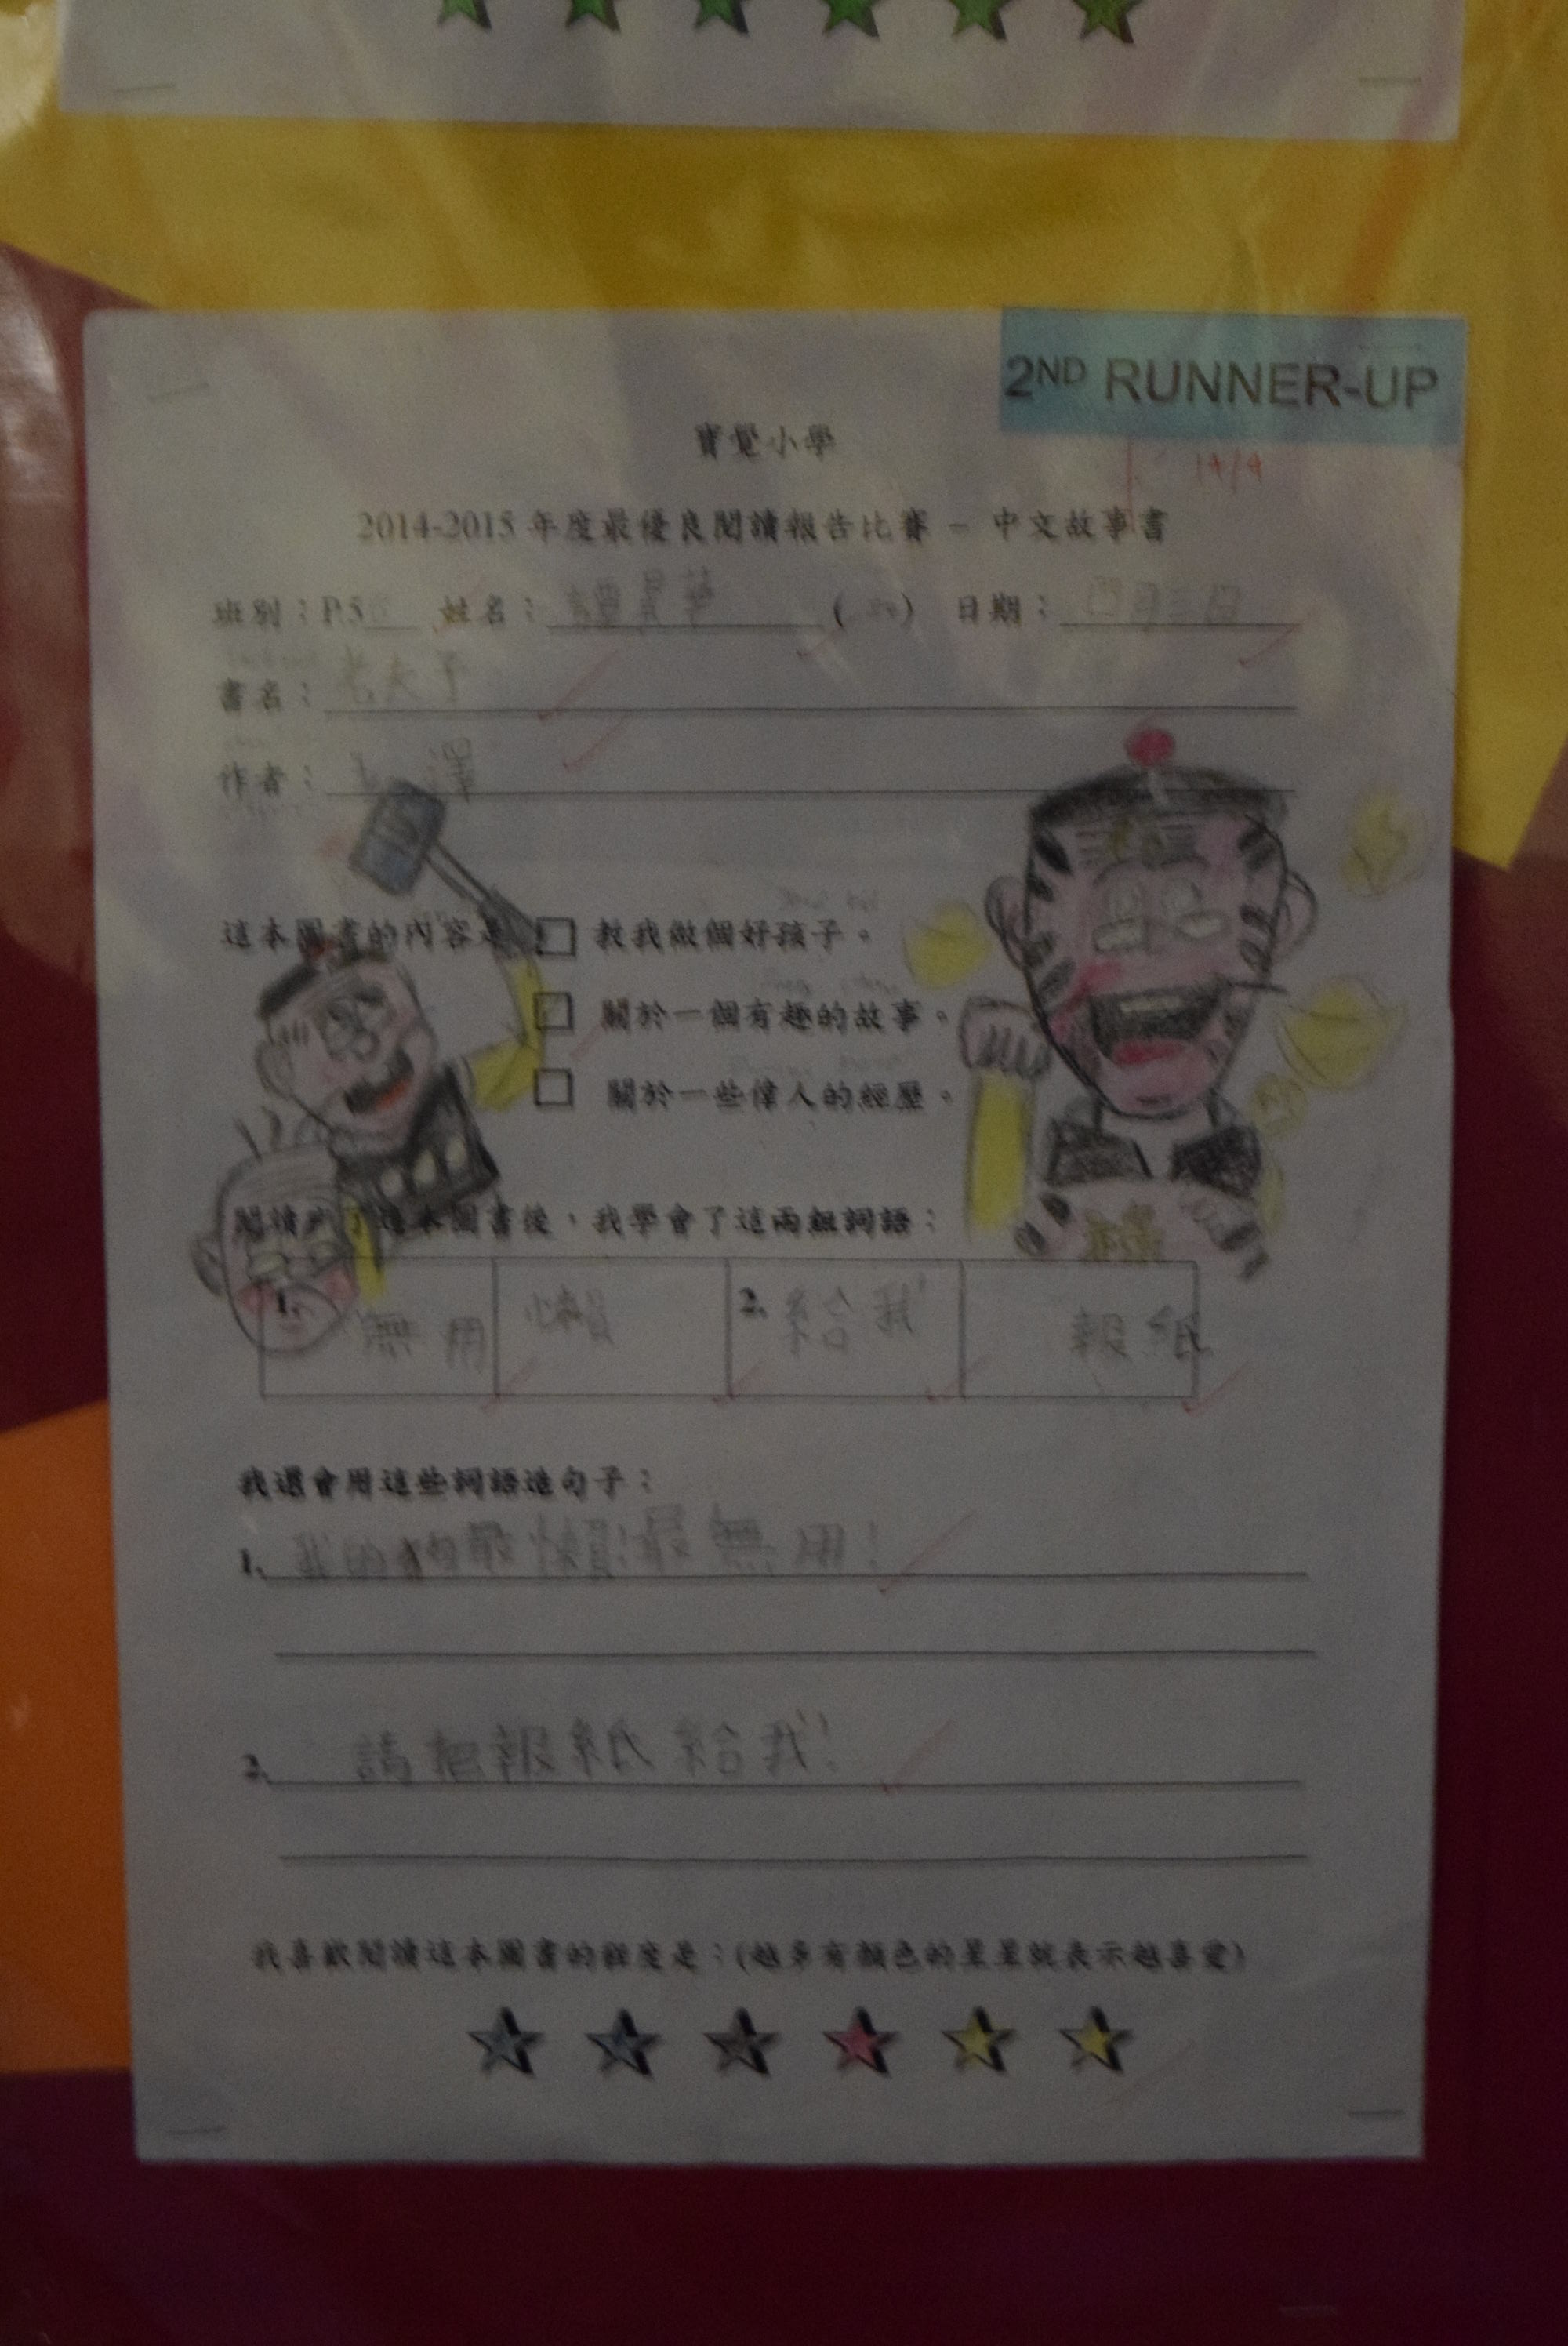 2ND RUNNER-UP
寶覺小學
14/4
2014-2015 年度最優良閱讀報告比賽 - 中文故事書
班別：P.5 姓名： ( ) 日期：四月三日
書名：老夫子
作者： 澤
這本圖書的內容是 教我做個好孩子。
關於一個有趣的故事。
關於一些偉人的經歷。
閱讀 了這本圖書後，我學會了這兩組詞語：
1. 無用 懶 2. 給我 報紙
我還會用這些詞語造句子：
1. 我的狗最懶!最無用!
2. 請把報紙給我!
我喜歡閱讀這本圖書的程度是：(越多有顏色的星星就表示越喜愛)